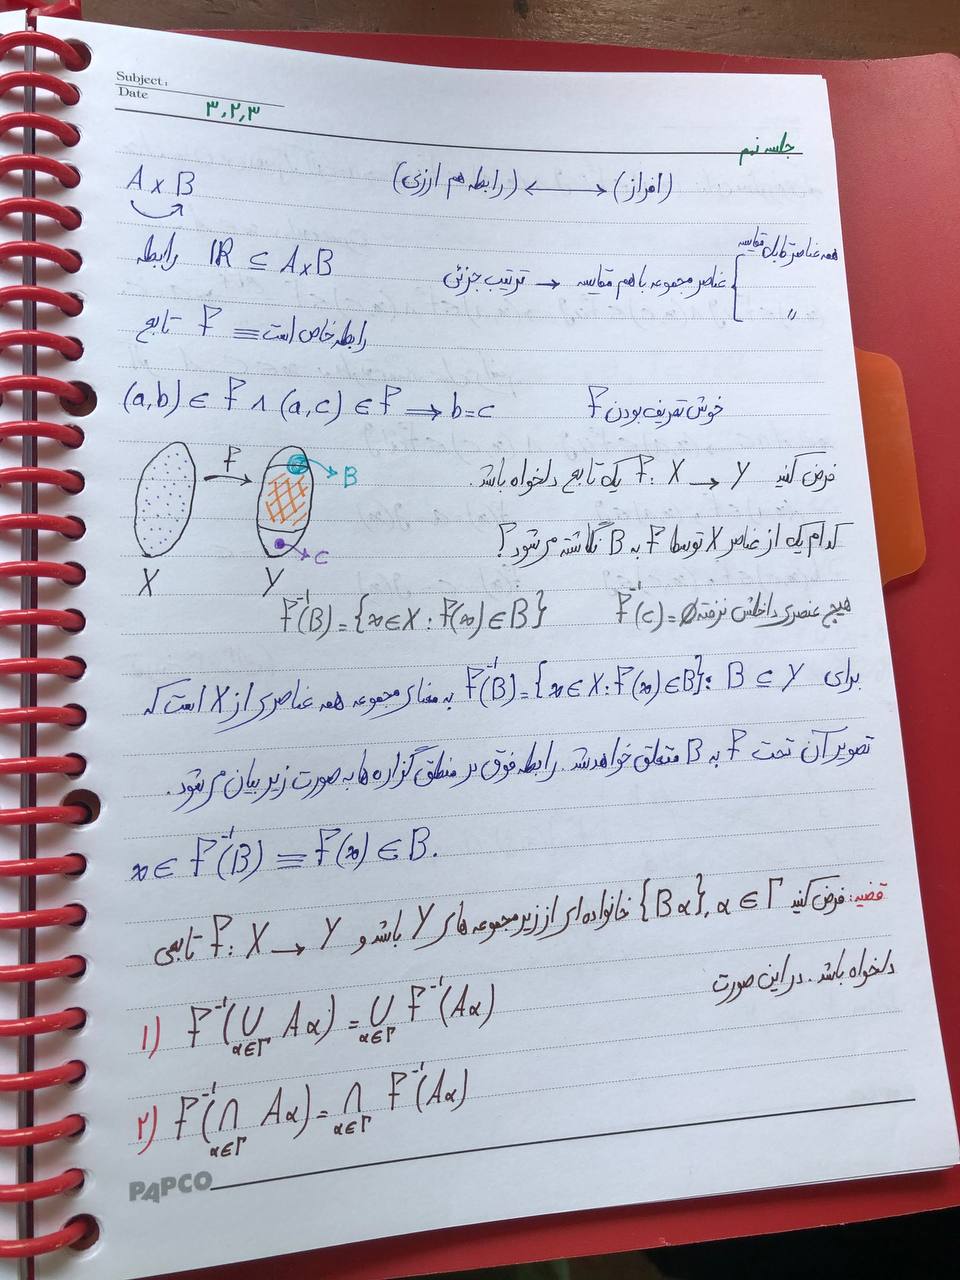 Subject:
Date
۳,۲,۳
جلسه نهم
A × B
(افراز) ⟷ (رابطه هم ارزی)
رابطه R ⊆ A×B
همه عناصر قابل مقایسه
عناصر مجموعه با هم مقایسه → ترتیب جزئی
"
رابطه خاص است ≡ f تابع
(a,b) ∈ f ∧ (a,c) ∈ f ⟹ b=c
خوش تعریف بودن f
f
B
C
X
Y
فرض کنید f: X → Y یک تابع دلخواه باشد.
کدام یک از عناصر X توسط f به B نگاشته می‌شود؟
f⁻¹(B) = {x∈X : f(x) ∈ B}
f⁻¹(c) = ∅ هیچ عنصری داخلش نرفته
برای B ⊆ Y : f⁻¹(B) = {x∈X : f(x)∈B} به معنای مجموعه همه عناصری از X است که
تصویر آن تحت f به B متعلق خواهد شد. رابطه فوق در منطق گزاره ها به صورت زیر بیان می‌شود.
x ∈ f⁻¹(B) ≡ f(x) ∈ B.
قضیه: فرض کنید {Bα}, α ∈ Γ خانواده ای از زیرمجموعه های Y باشد و f: X → Y تابعی
دلخواه باشد. در این صورت
۱) f⁻¹(∪α∈Γ Aα) = ∪α∈Γ f⁻¹(Aα)
۲) f⁻¹(∩α∈Γ Aα) = ∩α∈Γ f⁻¹(Aα)
PAPCO